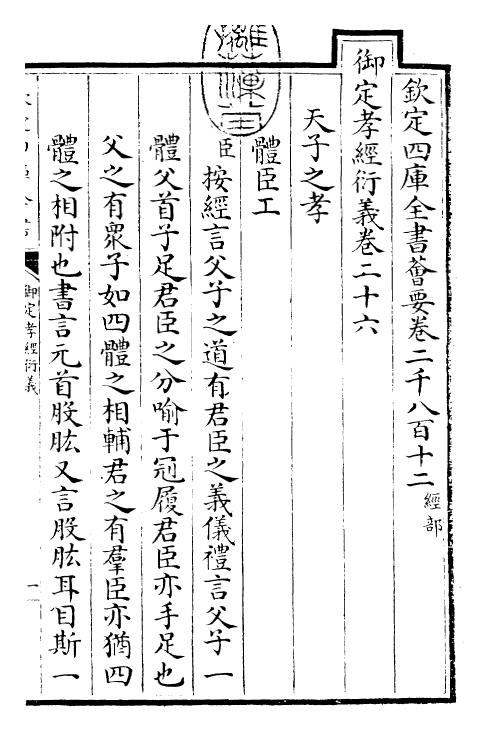 欽定四庫全書薈要卷二千八百十二 經部
御定孝經衍義卷二十六
天子之孝
體臣工
臣按經言父子之道有君臣之義儀禮言父子一
體父首子足君臣之分喻于冠履君臣亦手足也
父之有衆子如四體之相輔君之有羣臣亦猶四
體之相附也書言元首股肱又言股肱耳目斯一
御定孝經衍義
一